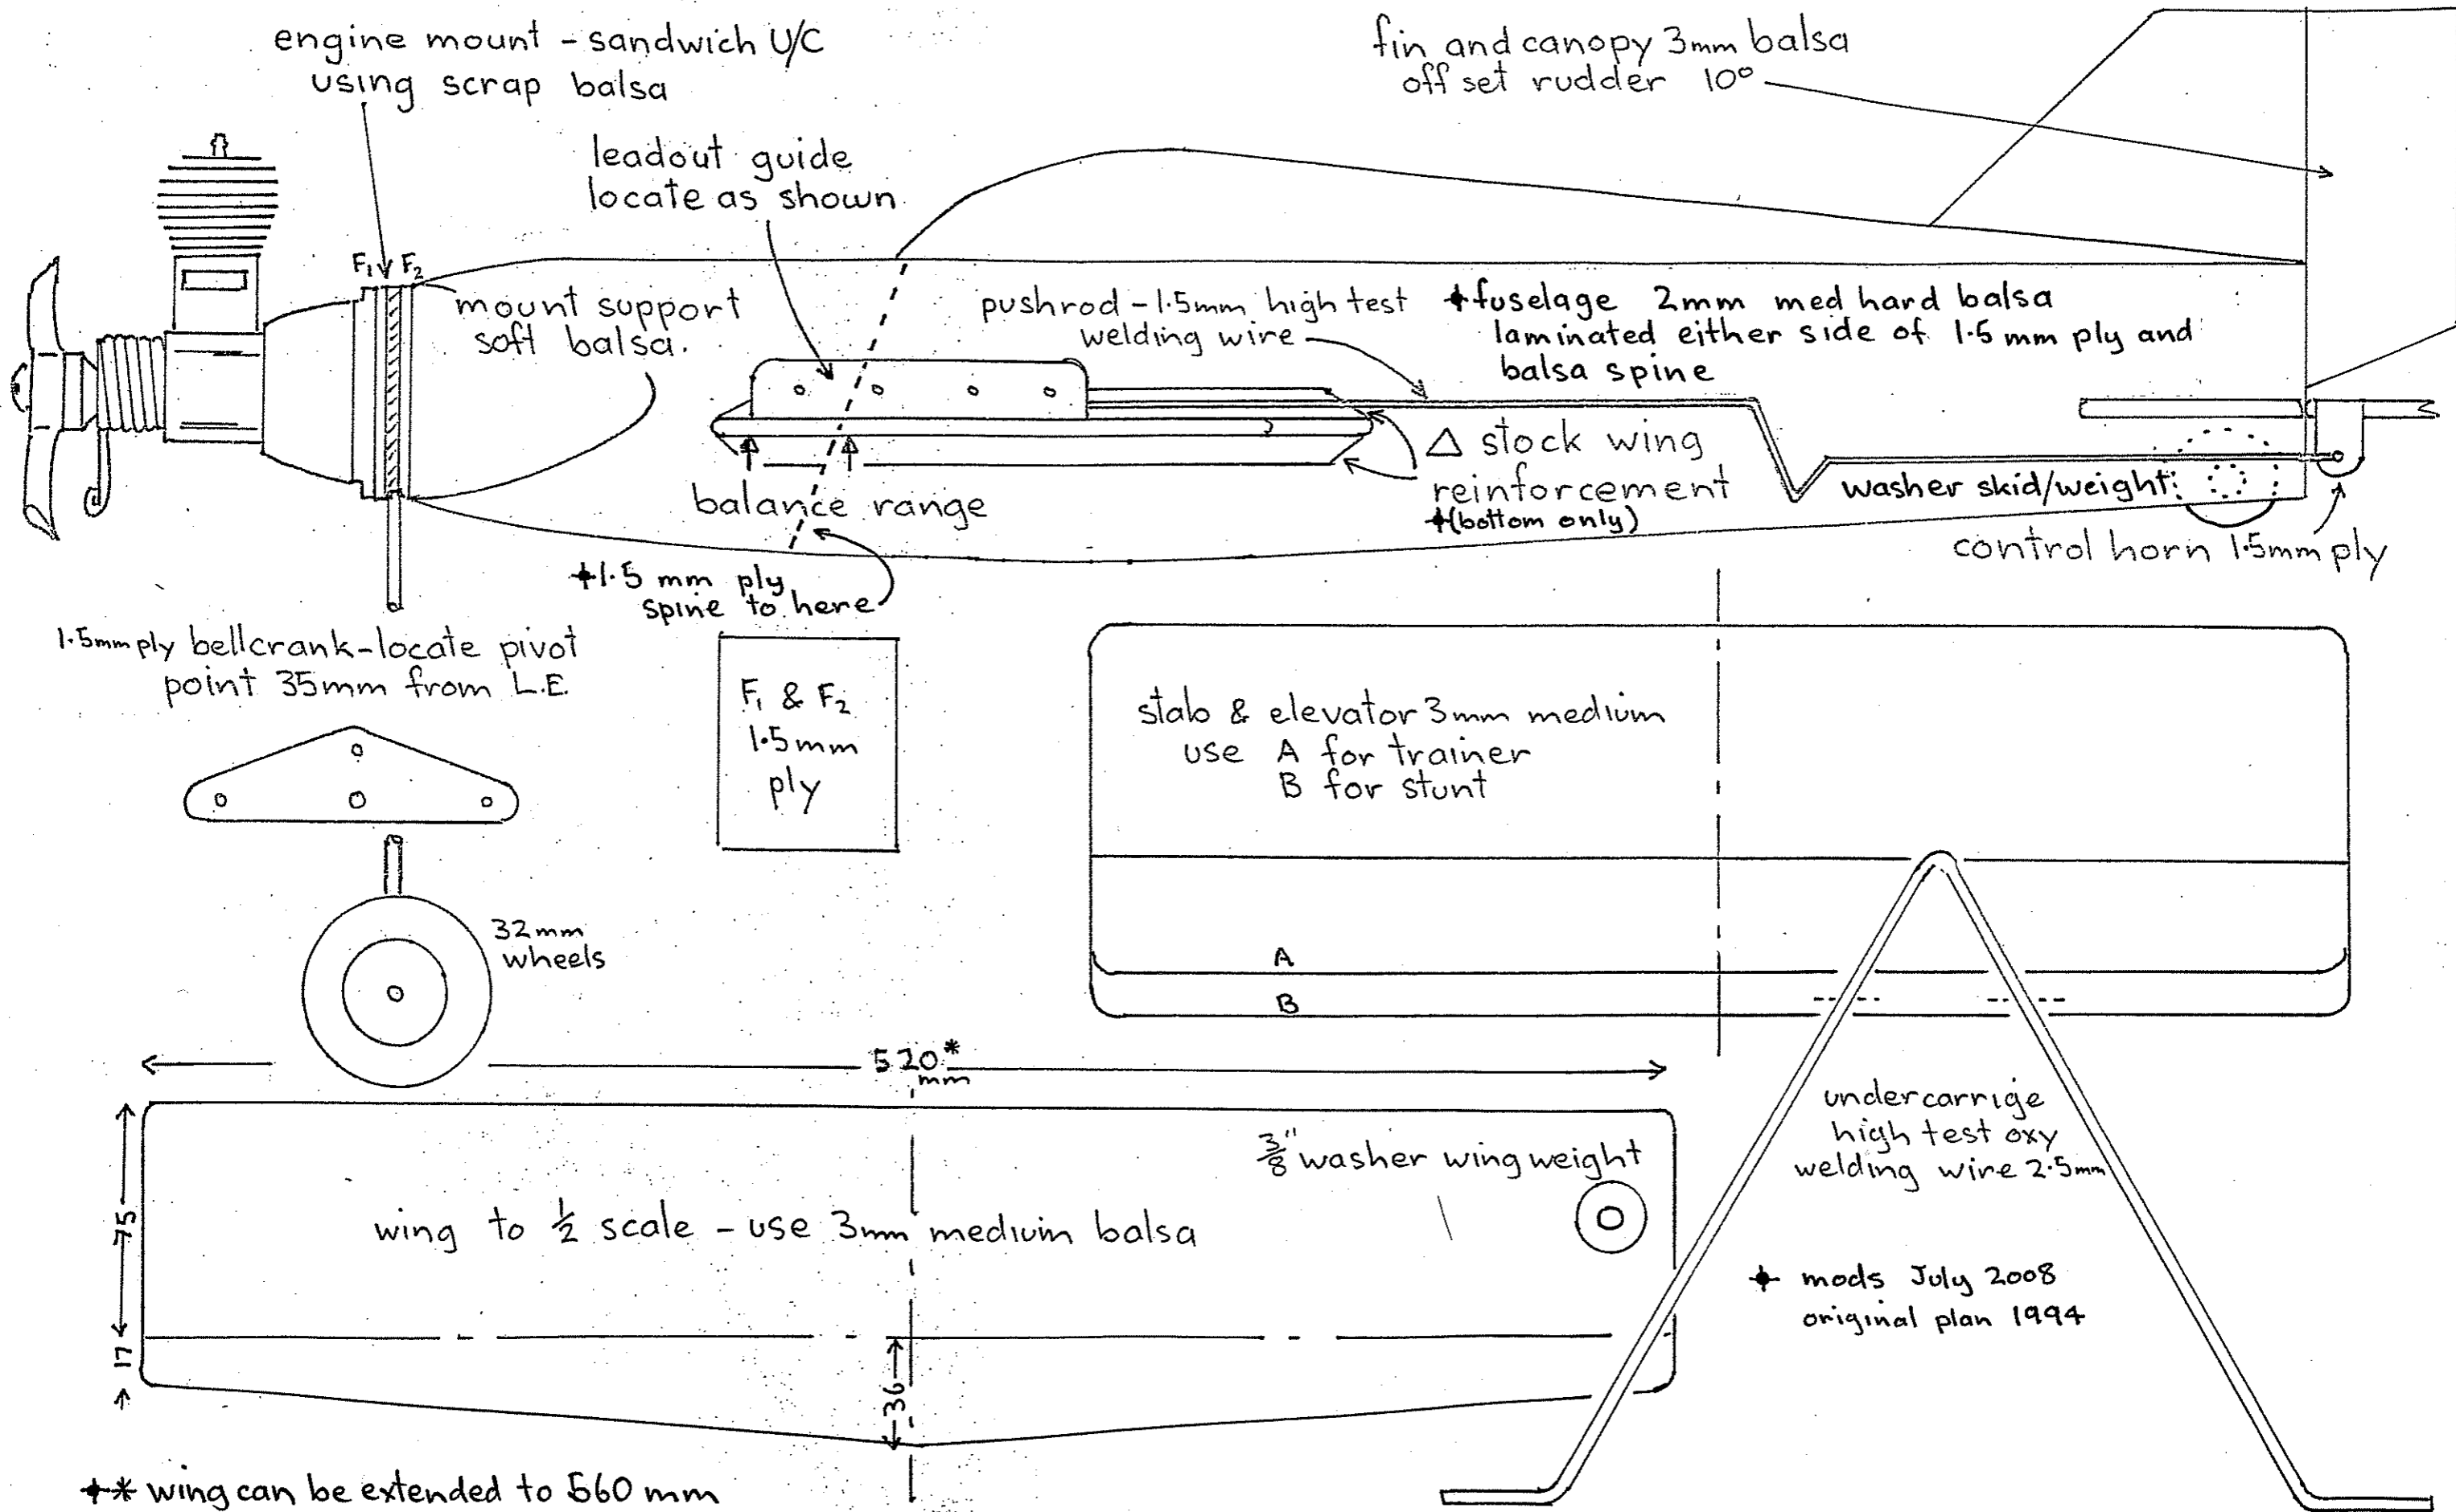 engine mount - sandwich U/C
using scrap balsa
fin and canopy 3mm balsa
off set rudder 10°
leadout guide
locate as shown
F₁ F₂
mount support
soft balsa.
pushrod - 1.5mm high test
welding wire
✦fuselage 2mm med hard balsa
laminated either side of 1.5 mm ply and
balsa spine
△ stock wing
reinforcement
✦(bottom only)
balance range
washer skid/weight
control horn 1.5mm ply
✦1.5 mm ply
spine to here
1.5mm ply bellcrank-locate pivot
point 35mm from L.E.
F₁ & F₂
1.5mm
ply
stab & elevator 3mm medium
use A for trainer
B for stunt
32mm
wheels
A
B
520*
mm
undercarrige
high test oxy
welding wire 2.5mm
3/8" washer wing weight
75
wing to 1/2 scale - use 3mm medium balsa
✦ mods July 2008
original plan 1994
17
36
✦* wing can be extended to 560 mm